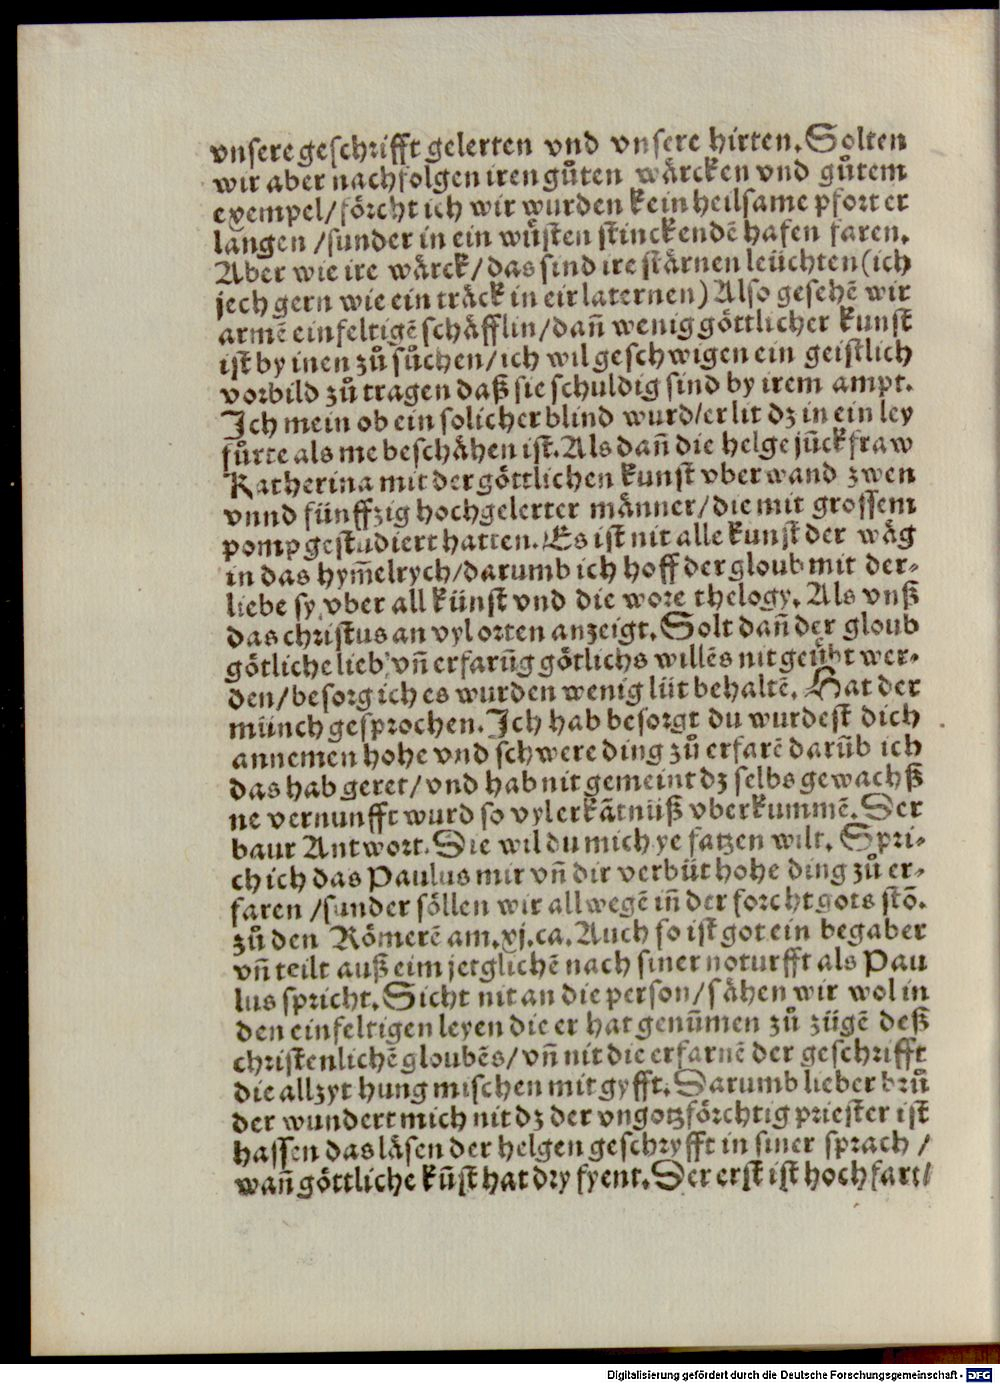 vnsere geschrifft gelerten vnd vnsere hirten. Solten
wir aber nachfolgen iren gůten wärcken vnd gůtem
exempel / förcht ich wir wurden kein heilsame pfort er
langen / sunder in ein wůsten stinckendē hafen faren.
Aber wie ire wärck / das sind ire stärnen leüchten (ich
jech gern wie ein träck in eir laternen) Also gesehē wir
armē einfeltigē schäfflin / dañ wenig göttlicher kunst
ist by inen zů sůchen / ich wil geschwigen ein geistlich
vorbild zů tragen daß sie schuldig sind by irem ampt.
Ich mein ob ein solicher blind wurd / er lit dz in ein ley
fůrte als me beschähen ist. Als dañ die helge jūckfraw
Katherina mit der göttlichen kunst vber wand zwen
vnnd fünffzig hochgelerter männer / die mit grossem
pomp gestudiert hatten. Es ist nit alle kunst der wäg
in das hym̄elrych / darumb ich hoff der gloub mit der-
liebe sy vber all künst vnd die wore thelogy. Als vnß
das christus an vyl orten anzeigt. Solt dañ der gloub
götliche lieb vñ erfarūg götlichs willēs nit geůbt wer-
den / besorg ich es wurden wenig lüt behaltē. Hat der
münch gesprochen. Ich hab besorgt du wurdest dich
annemen hohe vnd schwere ding zů erfarē darūb ich
das hab geret / vnd hab nit gemeint dz selbs gewachß
ne vernunfft wurd so vyl erkātnüß vberkummē. Der
baur Antwort. Die wil du mich ye fatzen wilt. Spri-
ch ich das Paulus mir vñ dir verbüt hohe ding zů er-
faren / sunder söllen wir allwegē iñ der forcht gots stō.
zů den Römerē am. xj. ca. Auch so ist got ein begaber
vñ teilt auß eim jetglichē nach siner noturfft als Pau
lus spricht. Sicht nit an die person / sähen wir wol in
den einfeltigen leyen die er hat genūmen zů zügē deß
christenlichē gloubēs / vñ nit die erfarnē der geschrifft
die allzyt hung mischen mit gyfft. Darumb lieber brů
der wundert mich nit dz der vngotzförchtig priester ist
hassen das läsen der helgen geschryfft in siner sprach /
wañ göttliche kūst hat dry fyent. Der erst ist hochfart /
Digitalisierung gefördert durch die Deutsche Forschungsgemeinschaft - DFG